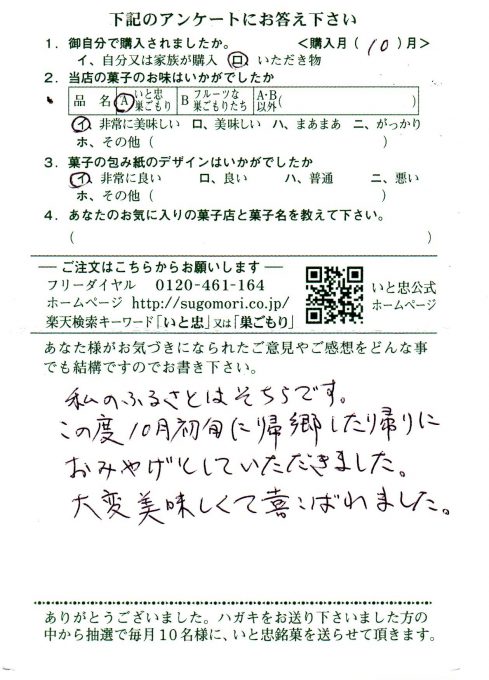 下記のアンケートにお答え下さい
1．御自分で購入されましたか。　＜購入月（ 10 ）月＞
イ、自分又は家族が購入　ロ、いただき物
2．当店の菓子のお味はいかがでしたか
品　名　A いと忠巣ごもり　B フルーツな巣ごもりたち　A・B以外（　　　）
イ、非常に美味しい　ロ、美味しい　ハ、まあまあ　ニ、がっかり
ホ、その他（　　　）
3．菓子の包み紙のデザインはいかがでしたか
イ、非常に良い　ロ、良い　ハ、普通　ニ、悪い
ホ、その他（　　　）
4．あなたのお気に入りの菓子店と菓子名を教えて下さい。
（　　　）
― ご注文はこちらからお願いします ―
フリーダイヤル　0120-461-164
ホームページ　http://sugomori.co.jp/
楽天検索キーワード「いと忠」又は「巣ごもり」
いと忠公式
ホームページ
あなた様がお気づきになられたご意見やご感想をどんな事
でも結構ですのでお書き下さい。
私のふるさとはそちらです。
この度10月初旬に帰郷したり帰りに
おみやげとしていただきました。
大変美味しくて喜こばれました。
ありがとうございました。ハガキをお送り下さいました方の
中から抽選で毎月10名様に、いと忠銘菓を送らせて頂きます。